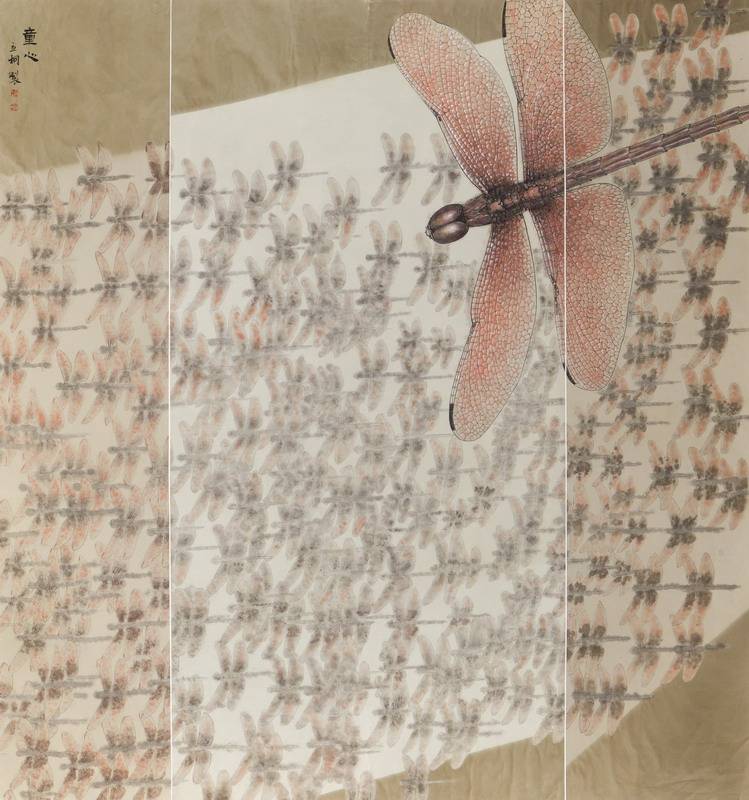 童心
立柯製